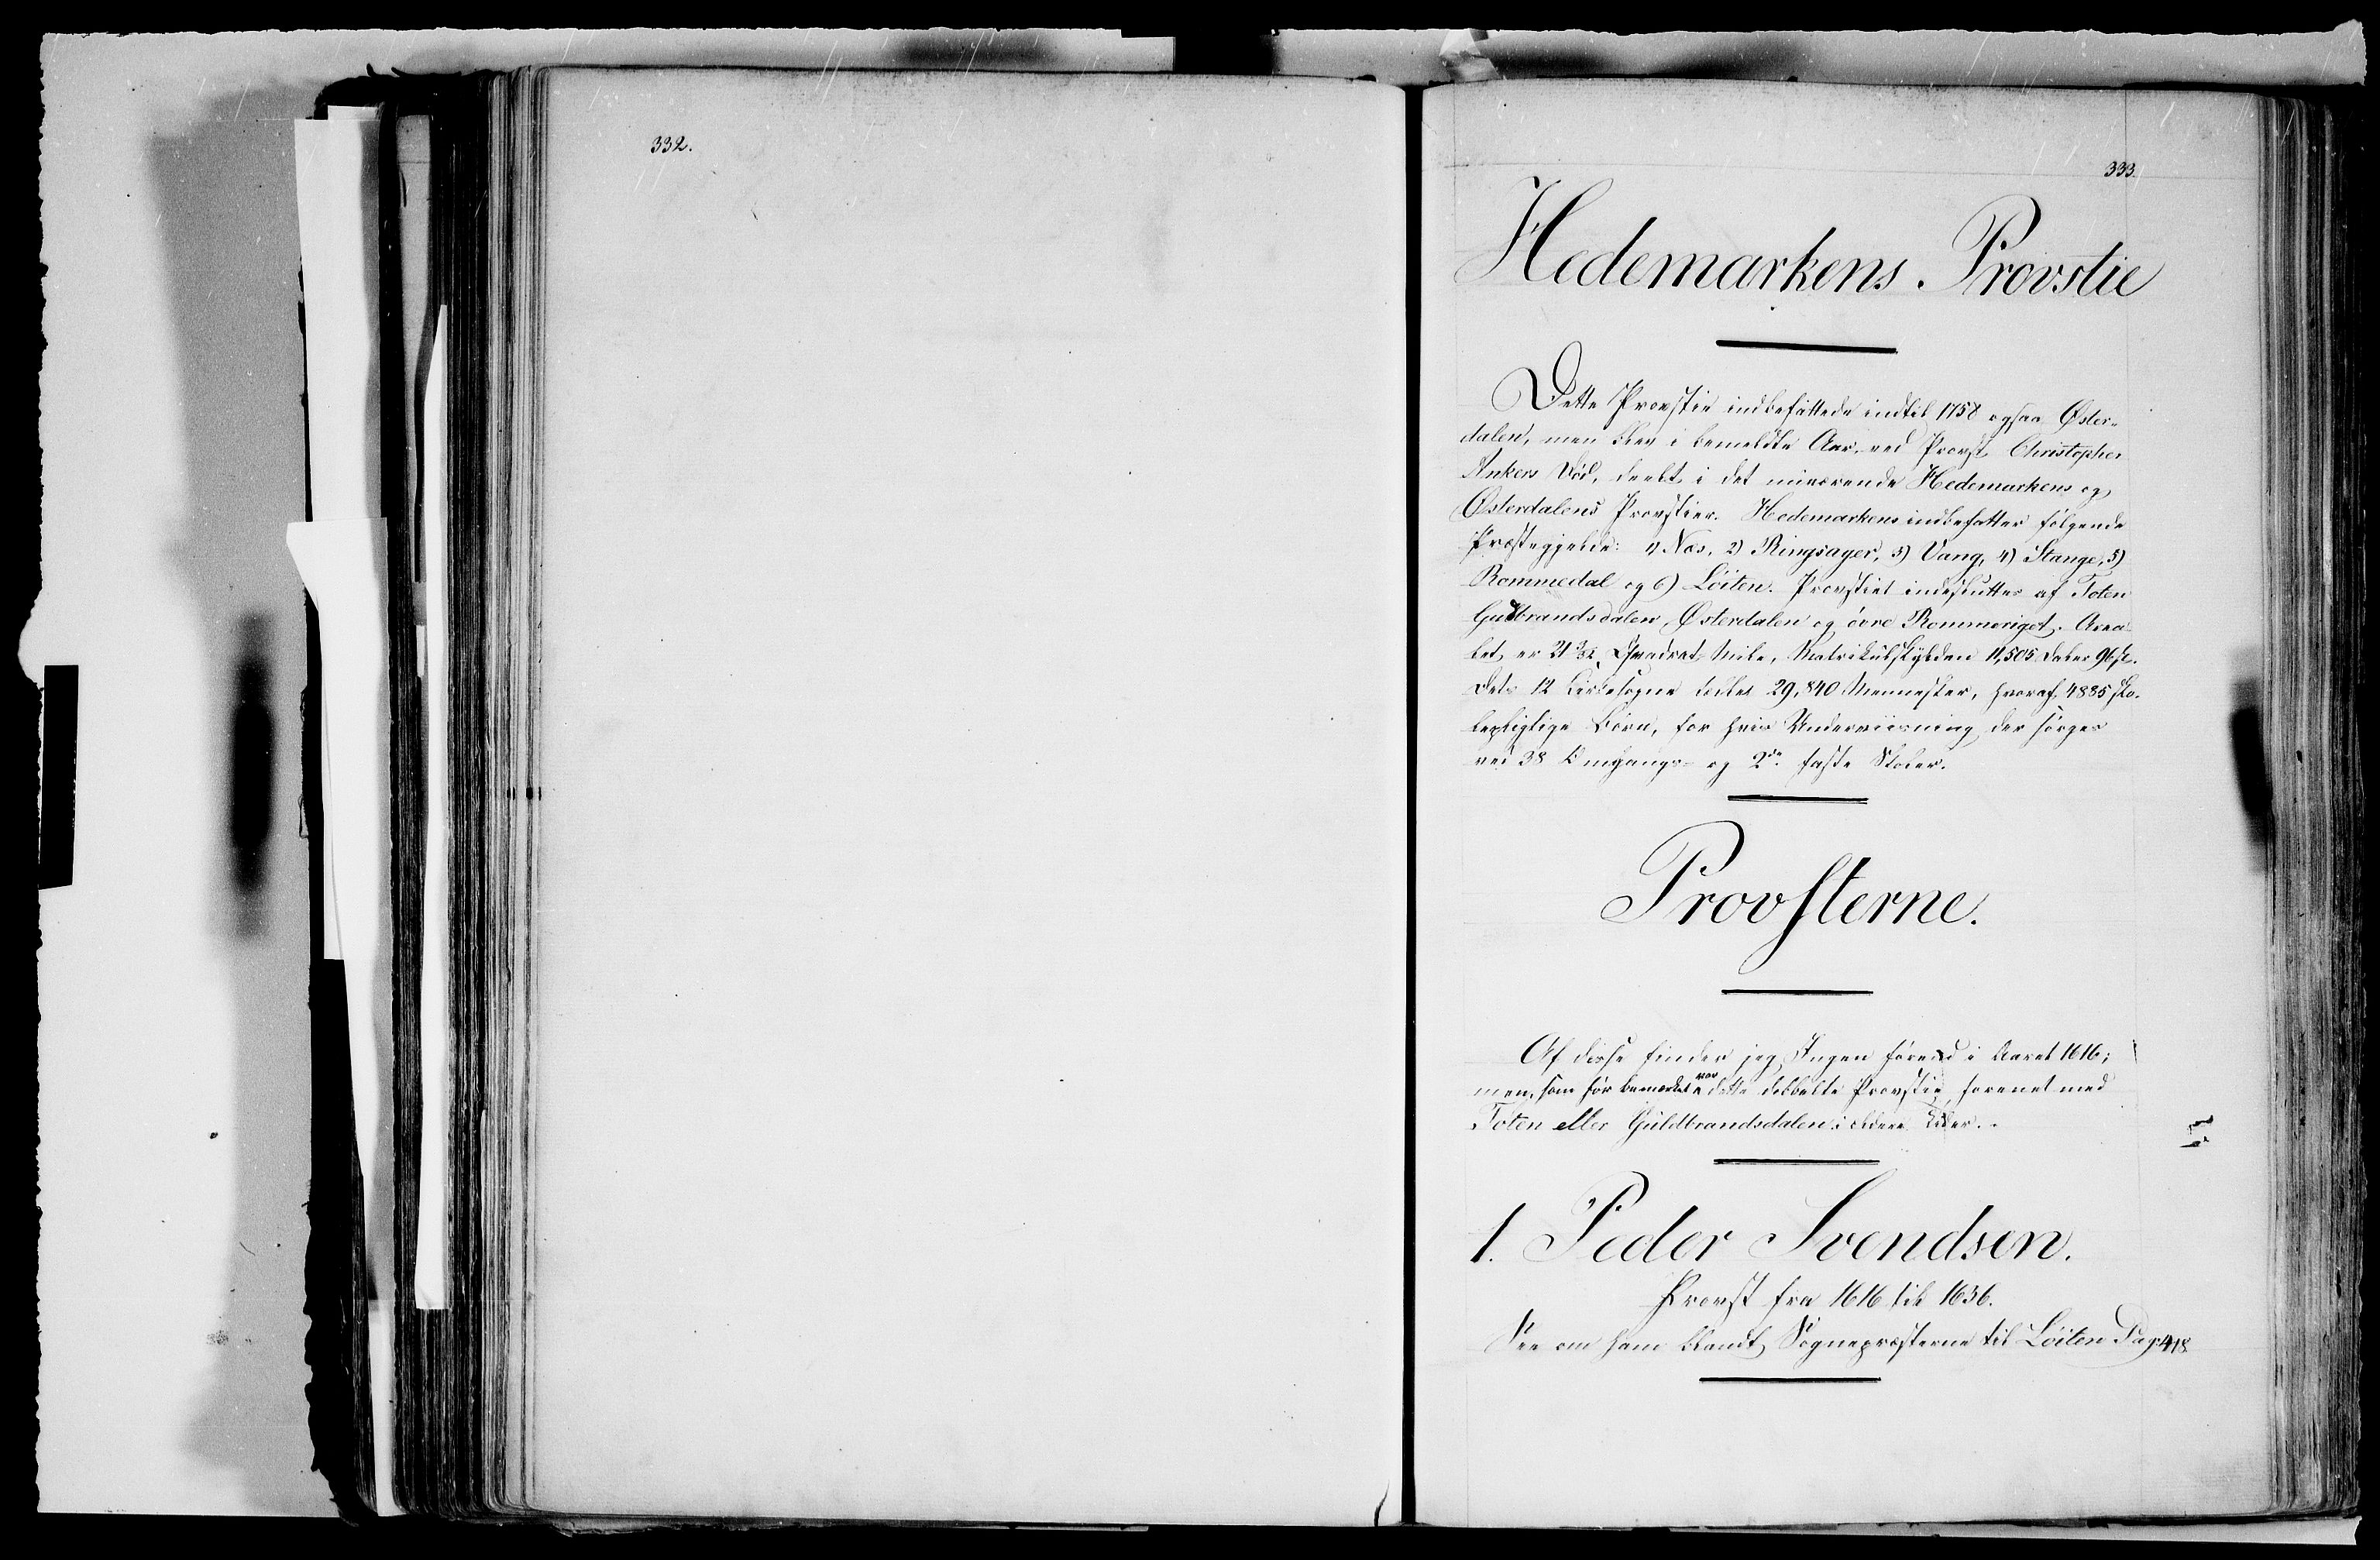 332.
333.
Hedemarkens Provstie
Dette Provstie indbefattede indtil 1758 ogsaa Øster-
dalen, men blev i bemeldte Aar, ved Provst Christopher
Ankers Død, deelt i det nuværende Hedemarkens og
Østerdalens Provstier. Hedemarkens indbefatter følgende
Præstegjelde: 1) Næs, 2) Ringsager, 3) Vang, 4) Stange, 5)
Rommedal og 6) Löiten. Provstiet indesluttes af Toten
Gudbrandsdalen, Østerdalen og övre Rommeriget. Area-
let er Qvadrat Mile, Matrikulskylden 11,505 Daler 96 ſ.
Dets 12 Kirkesogne tæller 29,840 Mennesker, hvoraf 4885 sko-
lepligtige Børn, for hvis Underviisning der sørges
ved 38 Omgangs- og 2de faste Skoler.
Provsterne.
Af disse finder jeg Ingen førend i Aaret 1616;
men, som før bemærket var dette dobbelte Provstie forenet med
Toten eller Guldbrandsdalen i ældere Tider.
1. Peder Svendsen.
Provst fra 1616 til 1636.
See om ham blandt Sognepræsterne til Löiten Pag. 418